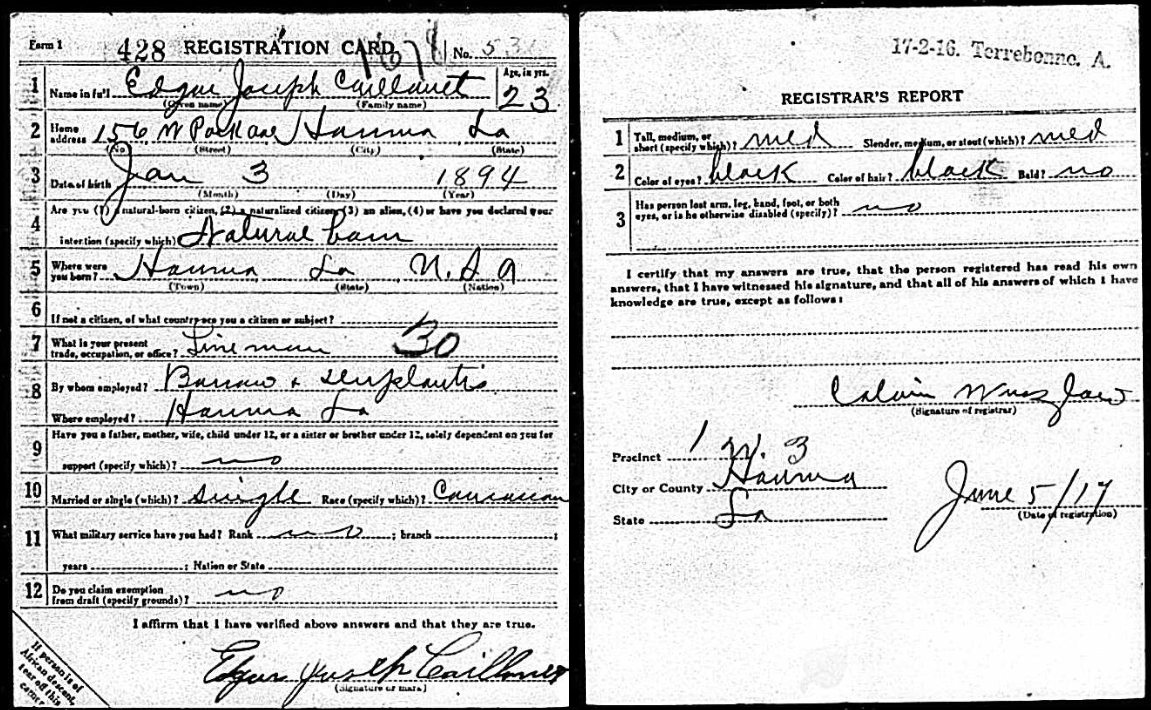 Form 1
428 REGISTRATION CARD No.
1 Name in full Edgar Joseph Caillouet Age, in yrs. 23
(Given name) (Family name)
2 Home address 156 W Park ave Houma La
(No.) (Street) (City) (State)
3 Date of birth Jan 3 1894
(Month) (Day) (Year)
4 Are you (1) a natural-born citizen, (2) a naturalized citizen, (3) an alien, (4) or have you declared your
intention (specify which)? Natural born
5 Where were you born? Houma La U.S.A
(Town) (State) (Nation)
6 If not a citizen, of what country are you a citizen or subject?
7 What is your present trade, occupation, or office? Lineman 30
8 By whom employed? Barrow + Duplantis
Where employed? Houma La
9 Have you a father, mother, wife, child under 12, or a sister or brother under 12, solely dependent on you for
support (specify which)? no
10 Married or single (which)? Single Race (specify which)? Caucasian
11 What military service have you had? Rank no ; branch ;
years ; Nation or State
12 Do you claim exemption from draft (specify grounds)? no
I affirm that I have verified above answers and that they are true.
Edgar Joseph Caillouet
(Signature or mark)
If person is of
African descent,
tear off this
corner
17-2-16. Terrebonne, A.
REGISTRAR'S REPORT
1 Tall, medium, or short (specify which)? med Slender, medium, or stout (which)? med
2 Color of eyes? black Color of hair? black Bald? no
3 Has person lost arm, leg, hand, foot, or both eyes, or is he otherwise disabled (specify)? no
I certify that my answers are true, that the person registered has read his own
answers, that I have witnessed his signature, and that all of his answers of which I have
knowledge are true, except as follows:
Calvin
(Signature of registrar)
Precinct 1 W. 3
City or County Houma
State La
June 5/17
(Date of registration)